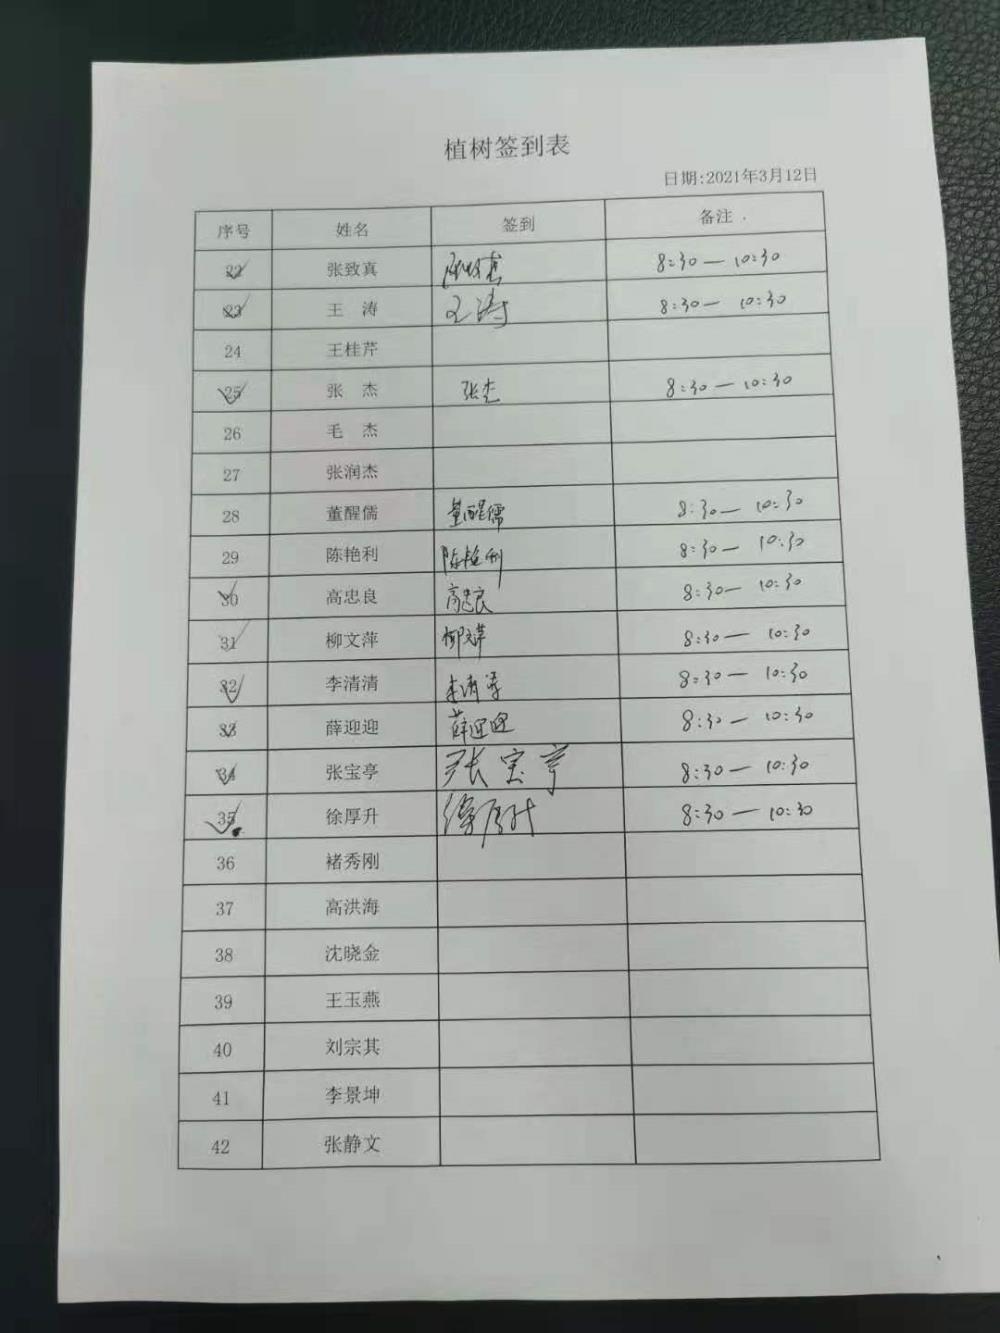 植树签到表
日期:2021年3月12日
序号 姓名 签到 备注
22 张致真 8:30 — 10:30
23 王 涛 王涛 8:30 — 10:30
24 王桂芹
25 张 杰 张杰 8:30 — 10:30
26 毛 杰
27 张润杰
28 董醒儒 董醒儒 8:30 — 10:30
29 陈艳利 陈艳利 8:30 — 10:30
30 高忠良 高忠良 8:30 — 10:30
31 柳文萍 柳文萍 8:30 — 10:30
32 李清清 李清清 8:30 — 10:30
33 薛迎迎 薛迎迎 8:30 — 10:30
34 张宝亭 张宝亭 8:30 — 10:30
35 徐厚升 徐厚升 8:30 — 10:30
36 褚秀刚
37 高洪海
38 沈晓金
39 王玉燕
40 刘宗其
41 李景坤
42 张静文